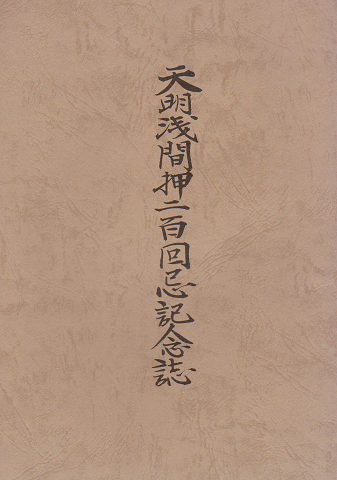 天明浅間押二百回忌記念誌